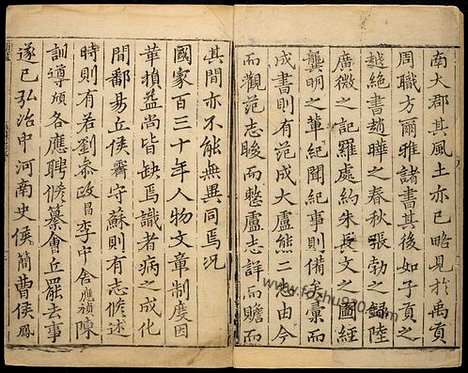 南大郡其風土亦已略見於禹貢
周職方爾雅諸書其後如子貢之
越絕書趙曄之春秋張勃之錄陸
廣微之記羅處約朱長文之圖經
龔明之輩紀聞紀事則備矣彙而
成書則有范成大盧熊二志由今
而觀范志畯而整盧志詳而贍而
其間亦不能無異同焉況
國家百三十年人物文章制度因
革損益尚皆缺焉識者病之成化
間鄱昜丘侯霽守蘇則有志脩述
時則有若劉叅政昌李中舍應禎陳
訓導頎各應聘脩纂會丘罷去事
遂已弘治中河南史侯簡曹侯鳳